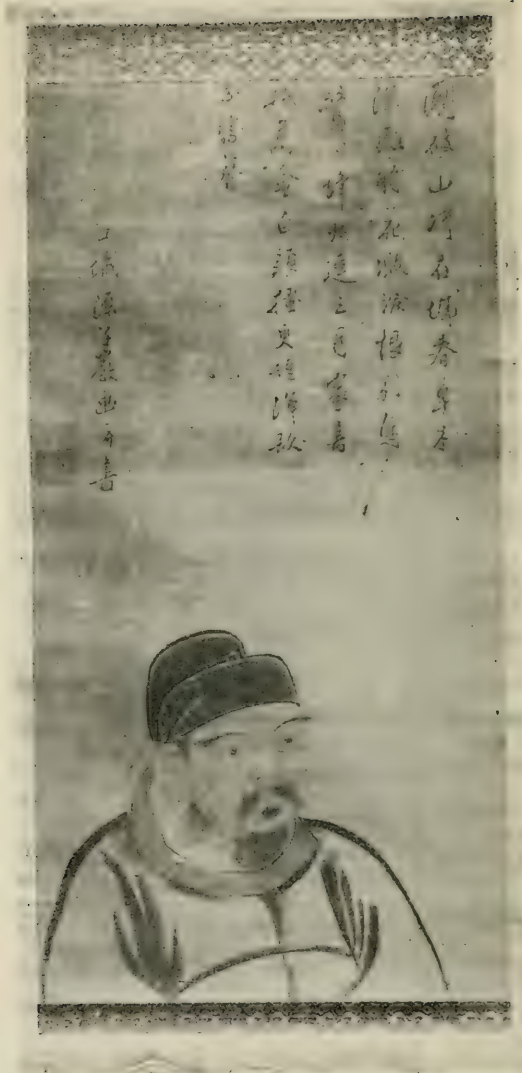 國破山河在城春草木
深感時花濺淚恨別鳥
驚心烽火連三月家書
抵万金白頭搔更短渾欲
不勝簪
源 畫并書